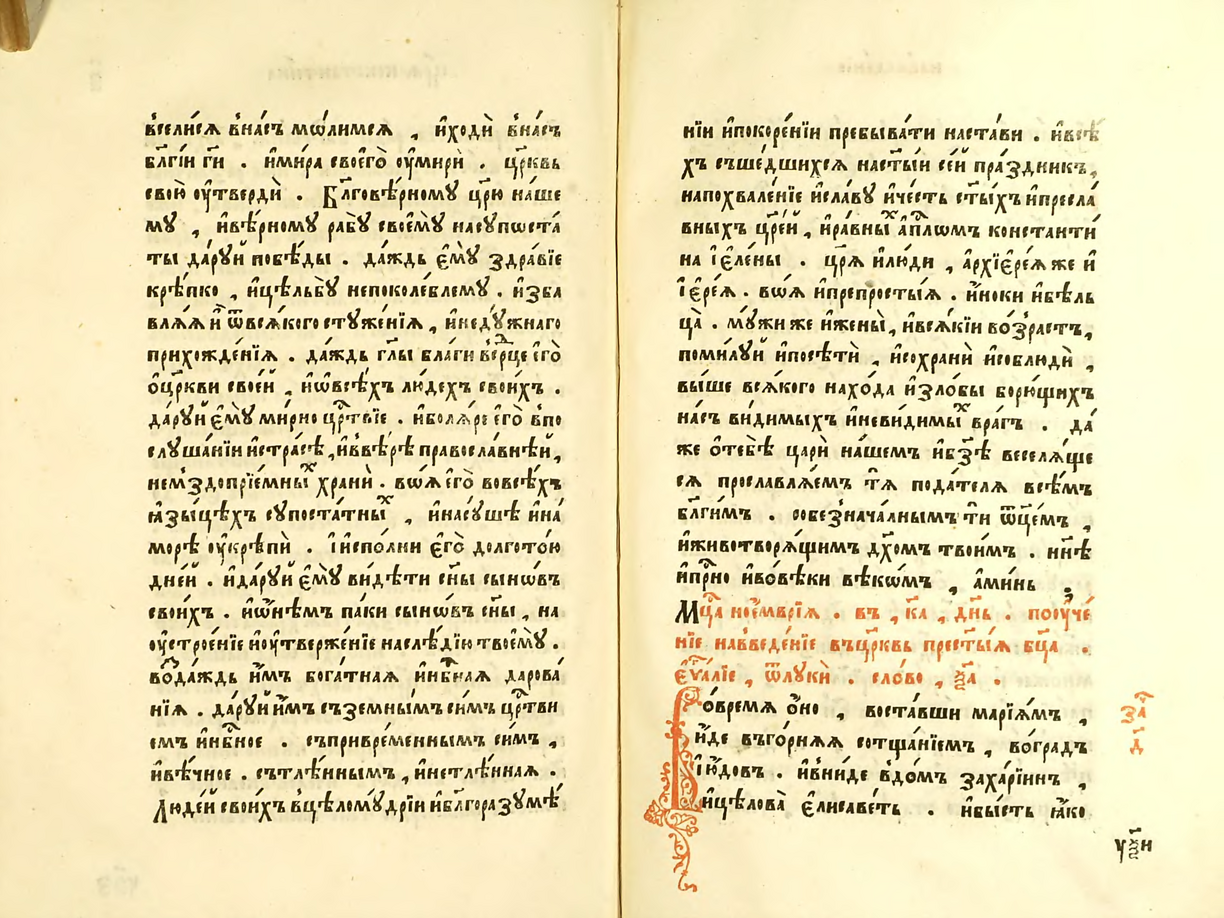 всели́сѧ в̾на́съ мѡ́лимсѧ , и҆ходѝ в̾на́съ
бл҃гі́и гд҇и . и҆ми́ра своего̀ оу҆мирѝ . цр҃ковь
свою̀ оу҆твердѝ . Бл҃говѣ́рному цр҃ю на́ше
му̀ , и҆вѣ́рному рабу̀ своемꙋ̀ насꙋпоста́
ты да́рꙋй побѣ́ды . да́ждь є҆мꙋ̀ здра́вїе
крѣ́пко , и҆цѣльбꙋ̀ непоколе́блемꙋ . и҆зба
влѧ́ѧ и҆̀ ѿвсѧ́кого стꙋже́нїѧ , и҆недꙋ́жнаго
прихожде́нїѧ . да́ждь гл҃ы бла́ги в̾се́рце є҆го̀
ѡ҆цр҃кви свое́й , и҆ѡ҆всѣ́хъ лю́дехъ свои́хъ .
да́рꙋй є҆мꙋ̀ ми́рно црⷭ҇твїе . и҆болѧ́ре є҆го̀ в̾по
слꙋша́нїи и҆стра́сѣ , и҆в̾вѣ́рѣ правосла́внѣй ,
немздопрїе́мныⷯ хранѝ . воѧ̀ є҆го̀ вовсѣ́хъ
ꙗ҆зы́цѣхъ сꙋпоста́тныⷯ , и҆насꙋ́шѣ и҆на́
мо́рѣ оу҆крѣпѝ . І҆ и҆спо́лни є҆го̀ долгото́ю
дне́й . и҆да́рꙋй є҆мꙋ̀ ви́дѣти сн҃ы сыно́въ
свои́хъ . и҆ѡ҆не́мъ па́ки сыно́въ сн҃ы , на
оу҆строе́нїе и҆оу҆твержє́нїе наслѣ́дїю твоемꙋ̀ .
возда́ждь и҆̀мъ бога́тнаѧ и҆нбⷭ҇наѧ дарова́
нїѧ . да́рꙋй и҆̀мъ съзе́мнымъ си́мъ црⷭ҇тви
емъ и҆нбⷭ҇ное . съпривре́меннымъ си́мъ ,
и҆вѣ́чное . сътлѣ́ннымъ , и҆нетлѣ́ннаѧ .
Люде́й свои́хъ в̾цѣломꙋ́дрїи и҆бл҃горазꙋмѣ́
нїи и҆покоре́нїи пребыва́ти наста́ви . и҆всѣ́
хъ съше́дшихсѧ настⷭ҇ы́и се́й пра́здникъ ,
напохвале́нїе и҆сла́вꙋ и҆че́сть ст҃ы́хъ и҆пресла́
вныхъ цр҃е́й , и҆ра́вныⷯ а҆пⷭ҇лѡмъ константи́
на і҆є҆ле́ны . цр҃ѧ̀ и҆лю́ди , а҆рхїере́ѧ же и҆
і҆ере́ѧ . воѧ̀ и҆препросты́ѧ . и҆́ноки и҆бѣ́ль
ца̀ . мꙋ́жи же и҆жены̀ , и҆всѧ́кїи во́зрастъ ,
поми́лꙋй и҆посѣтѝ , и҆сохранѝ и҆соблюдѝ ,
вы́ше всѧ́кого нахо́да и҆зло́бы борю́щихъ
на́съ ви́димыхъ и҆неви́димыⷯ вра́гъ . да́
же ѡ҆тебѣ̀ царѝ на́шемъ и҆бз҃ѣ веселѧ́ще
сѧ прославлѧ́емъ тѧ̀ пода́телѧ всѣ́мъ
бл҃ги́мъ . собезнача́лнымъ ти ѿц҃е́мъ ,
и҆животворѧ́щимъ дх҃омъ твои́мъ . нн҃ѣ
и҆прⷭ҇но и҆во́вѣки вѣко́мъ , а҆ми́нь .
Мцⷭ҇а ное҆́мврїѧ . въ , ка , дн҃ь . поꙋче́
нїе нав̾веде́нїе въцр҃квь престы́ѧ бц҃а .
є҆ѵⷢ҇а́лїе , ѿлꙋкѝ . сло́во , ѯ҃а .
Во́времѧ ѻ҆́но , воста́вши марїѧ́мъ ,
и҆́де въго́рнѧѧ сотща́нїемъ , во́градъ
і҆ю́довъ . и҆вни́де в̾до́мъ заха́рїинъ ,
и҆цѣлова̀ є҆лисаве́ть . и҆бы́сть ꙗ҆́ко
заⷱ҇
д҃